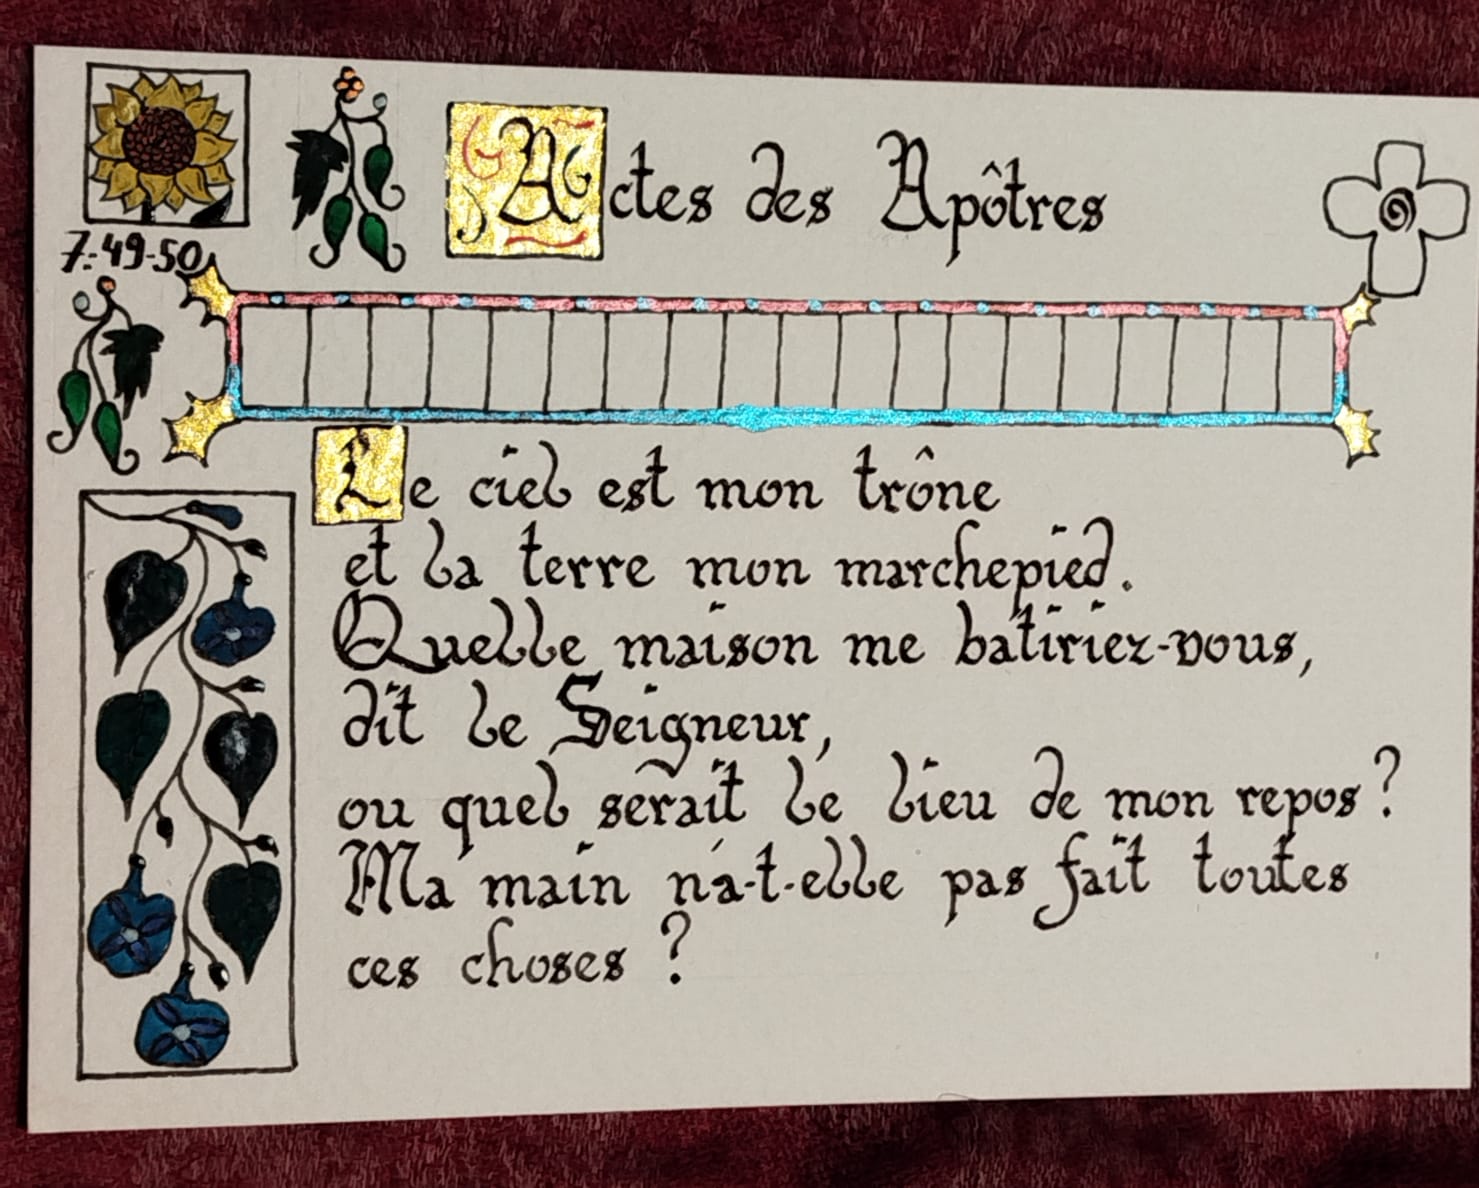 Actes des Apôtres
7:49-50
Le ciel est mon trône
et la terre mon marchepied.
Quelle maison me batiriez-vous,
dit le Seigneur,
ou quel serait le lieu de mon repos ?
Ma main n'a-t-elle pas fait toutes
ces choses ?